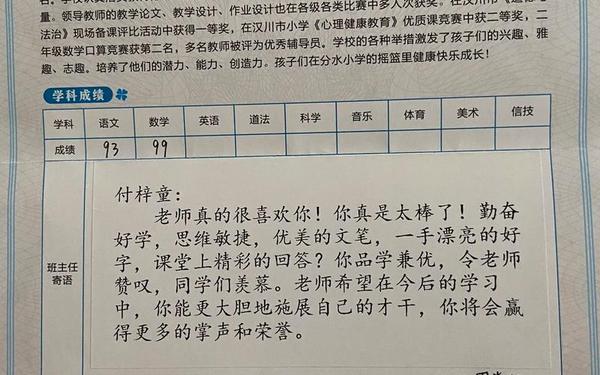 量。领导教师的教学论文、教学设计、作业设计也在各级各类比赛中多人次获奖。在汉川市
法治》现场备课评比活动中获得一等奖，在汉川市小学《心理健康教育》优质课竞赛中获二等奖，
年级数学口算竞赛获第二名，多名教师被评为优秀辅导员。学校的各种举措激发了孩子们的兴趣、雅
趣、志趣。培养了他们的潜力、能力、创造力。孩子们在分水小学的摇篮里健康快乐成长！
学科成绩
学科 语文 数学 英语 道法 科学 音乐 体育 美术 信技
成绩 93 99
班主任
寄语
付梓童：
老师真的很喜欢你！你真是太棒了！勤奋
好学，思维敏捷，优美的文笔，一手漂亮的好
字，课堂上精彩的回答？你品学兼优，令老师
赞叹，同学们羡慕。老师希望在今后的学习
中，你能更大胆地施展自己的才干，你将会赢
得更多的掌声和荣誉。